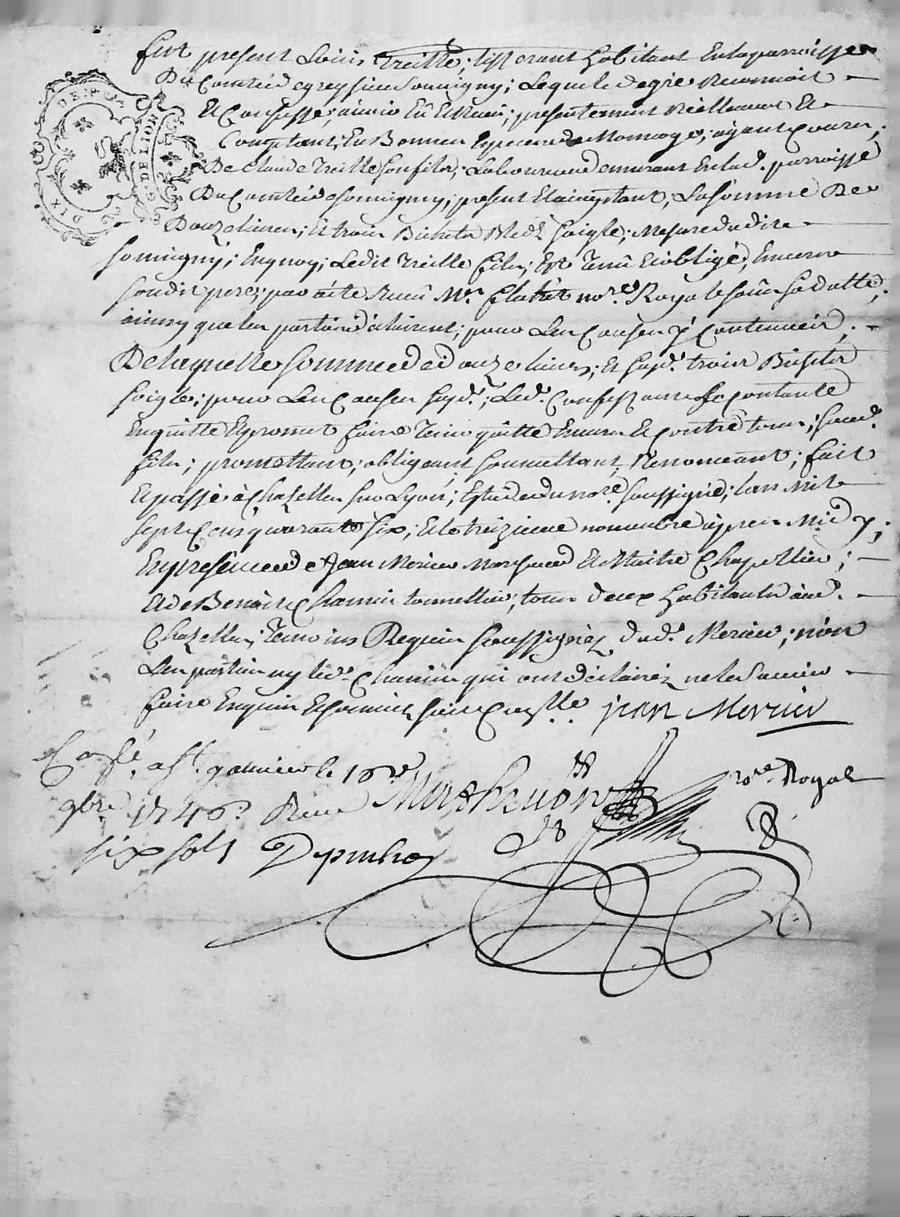 fut present Louis Treille, tisserant habitant en la parroisse
Du Comtée de greysieu Souvigny, Lequel de gré Reconnoit
Et Confesse, avoir Eu Et Receu, presentement Réellement Et
Comptant, En Bonnes Especes de Monnoye, ayant Cours,
De Claude Treille Son fils, Laboureur demeurant En lad. parroisse
Du Comtée Souvigny, present Et acceptant, La Somme De
Douze livres, Et trois Bichets Bled Soigle, Mesure dudit
Souvigny, En quoy, Ledit Treille fils, Est Tenû Et obligé, Envers
Soudit pere, par acte Receû Mre notre Royal Sous Sa datte,
ainsy que les parties déclairent, pour Les Causes y Contenues,
De laquelle Somme de douze livres, Et Susd. trois Bichets
Soigle, pour Les Causes Susd., Led. Confessant Se Contente
En quitte Et promet faire Tenir quitte Envers Et Contre tous, Sond.
fils, promettant, obligeant Soumettant, Renonceant, fait
Et passé à Chazelles Sur Lyon, Estude du nore Soussigné, l'an Mil
Sept Cens quarante Six, Et le treizieme novembre apres Midy,
En presence de Jean Merieu Marchand Et Maitre Chapellier,
Et de Benoist Chamin tonnellier, tous deux habitants aud.
Chazelles, Temoins Requis Soussignés led. Merieu, non
Les parties ny led. Chamin qui ont declairés ne le Sçavoir
faire Enquis Et Sommés Jean Merieu
nore Royal
Colé. a St. galmier le 16e
9bre 1746. Receu
six sols